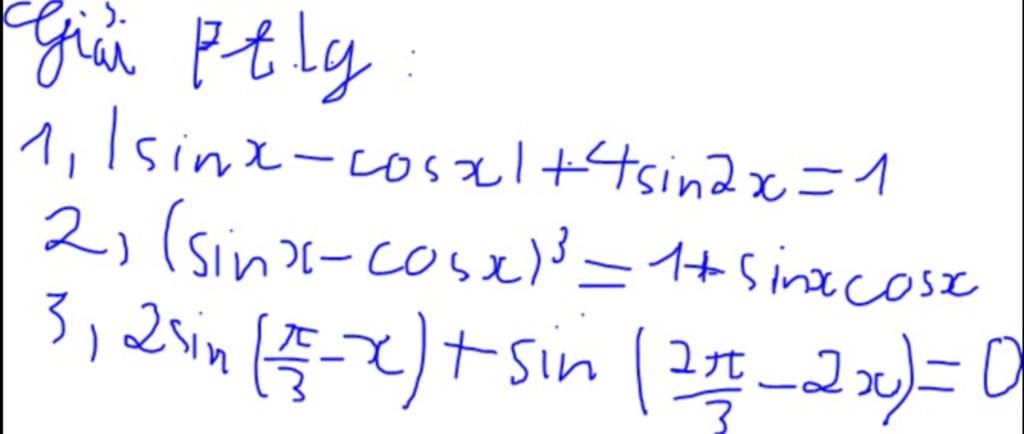 Giải Ptlg:
1, |sinx - cosx| + 4sin2x = 1
2, (sinx - cosx)³ = 1 + sinxcosx
3, 2sin(π/3 - x) + sin(2π/3 - 2x) = 0